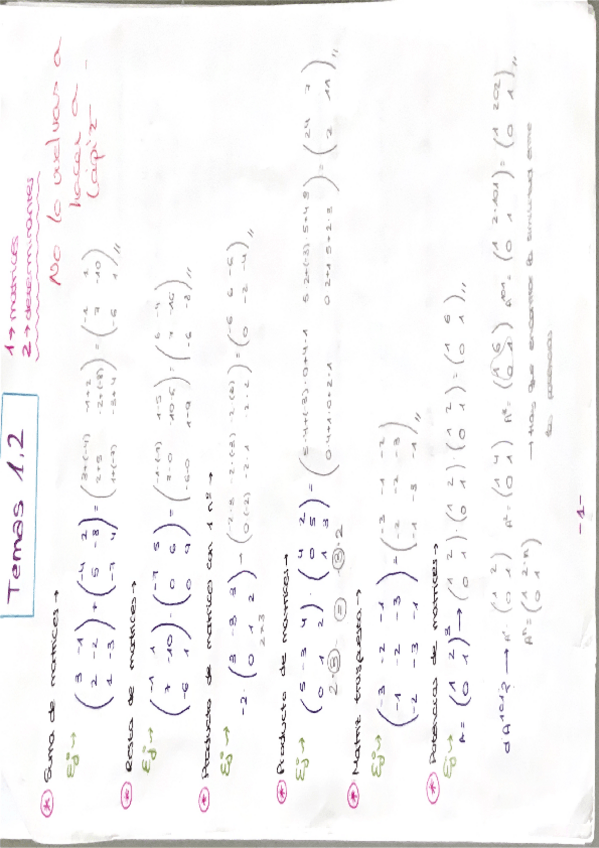 Temas 1,2
1→ matrices
2→ determinantes
No lo vuelvas a
hacer a
lápiz
* Suma de matrices →
Ej→
(3 -1
2 -2
1 -3) + (-4 2
5 -8
-7 4) = (3+(-4) -1+2
2+5 -2+(-8)
1+(-7) -3+4) = (-1 1
7 -10
-6 1)
* Resta de matrices →
Ej→
(-1 1
7 -10
-6 1) - (-7 5
0 6
0 9) =
* Producto de matrices con 1 nº →
Ej→
-2· (3 -3 3
0 1 2)
2x3
= (-6 6 -6
0 -2 -4)
* Producto de matrices →
Ej→
(5 -3 4
0 1 2) · (4 2
0 5
1 3) = (5·4+(-3)·0+4·1 5·2+(-3)·5+4·3
0·4+1·0+2·1 0·2+1·5+2·3) = (24 7
2 11)
2·③ = ③·2
* Matriz traspuesta →
Ej→
(-3 -2 -1
-1 -2 -3
-2 -3 -1) = (-3 -1 -2
-2 -2 -3
-1 -3 -1)
* Potencias de matrices →
Ej→
A = (1 2
0 1)³ → (1 2
0 1) · (1 2
0 1) · (1 2
0 1) = (1 6
0 1)
¿A¹⁰¹? → A¹ (1 2
0 1) A² = (1 4
0 1) A³ = (1 6
0 1) A¹⁰¹ = (1 2·101
0 1) = (1 202
0 1)
Aⁿ = (1 2·n
0 1)
→ Hay que encontrar la similitud entre
las potencias
-1-